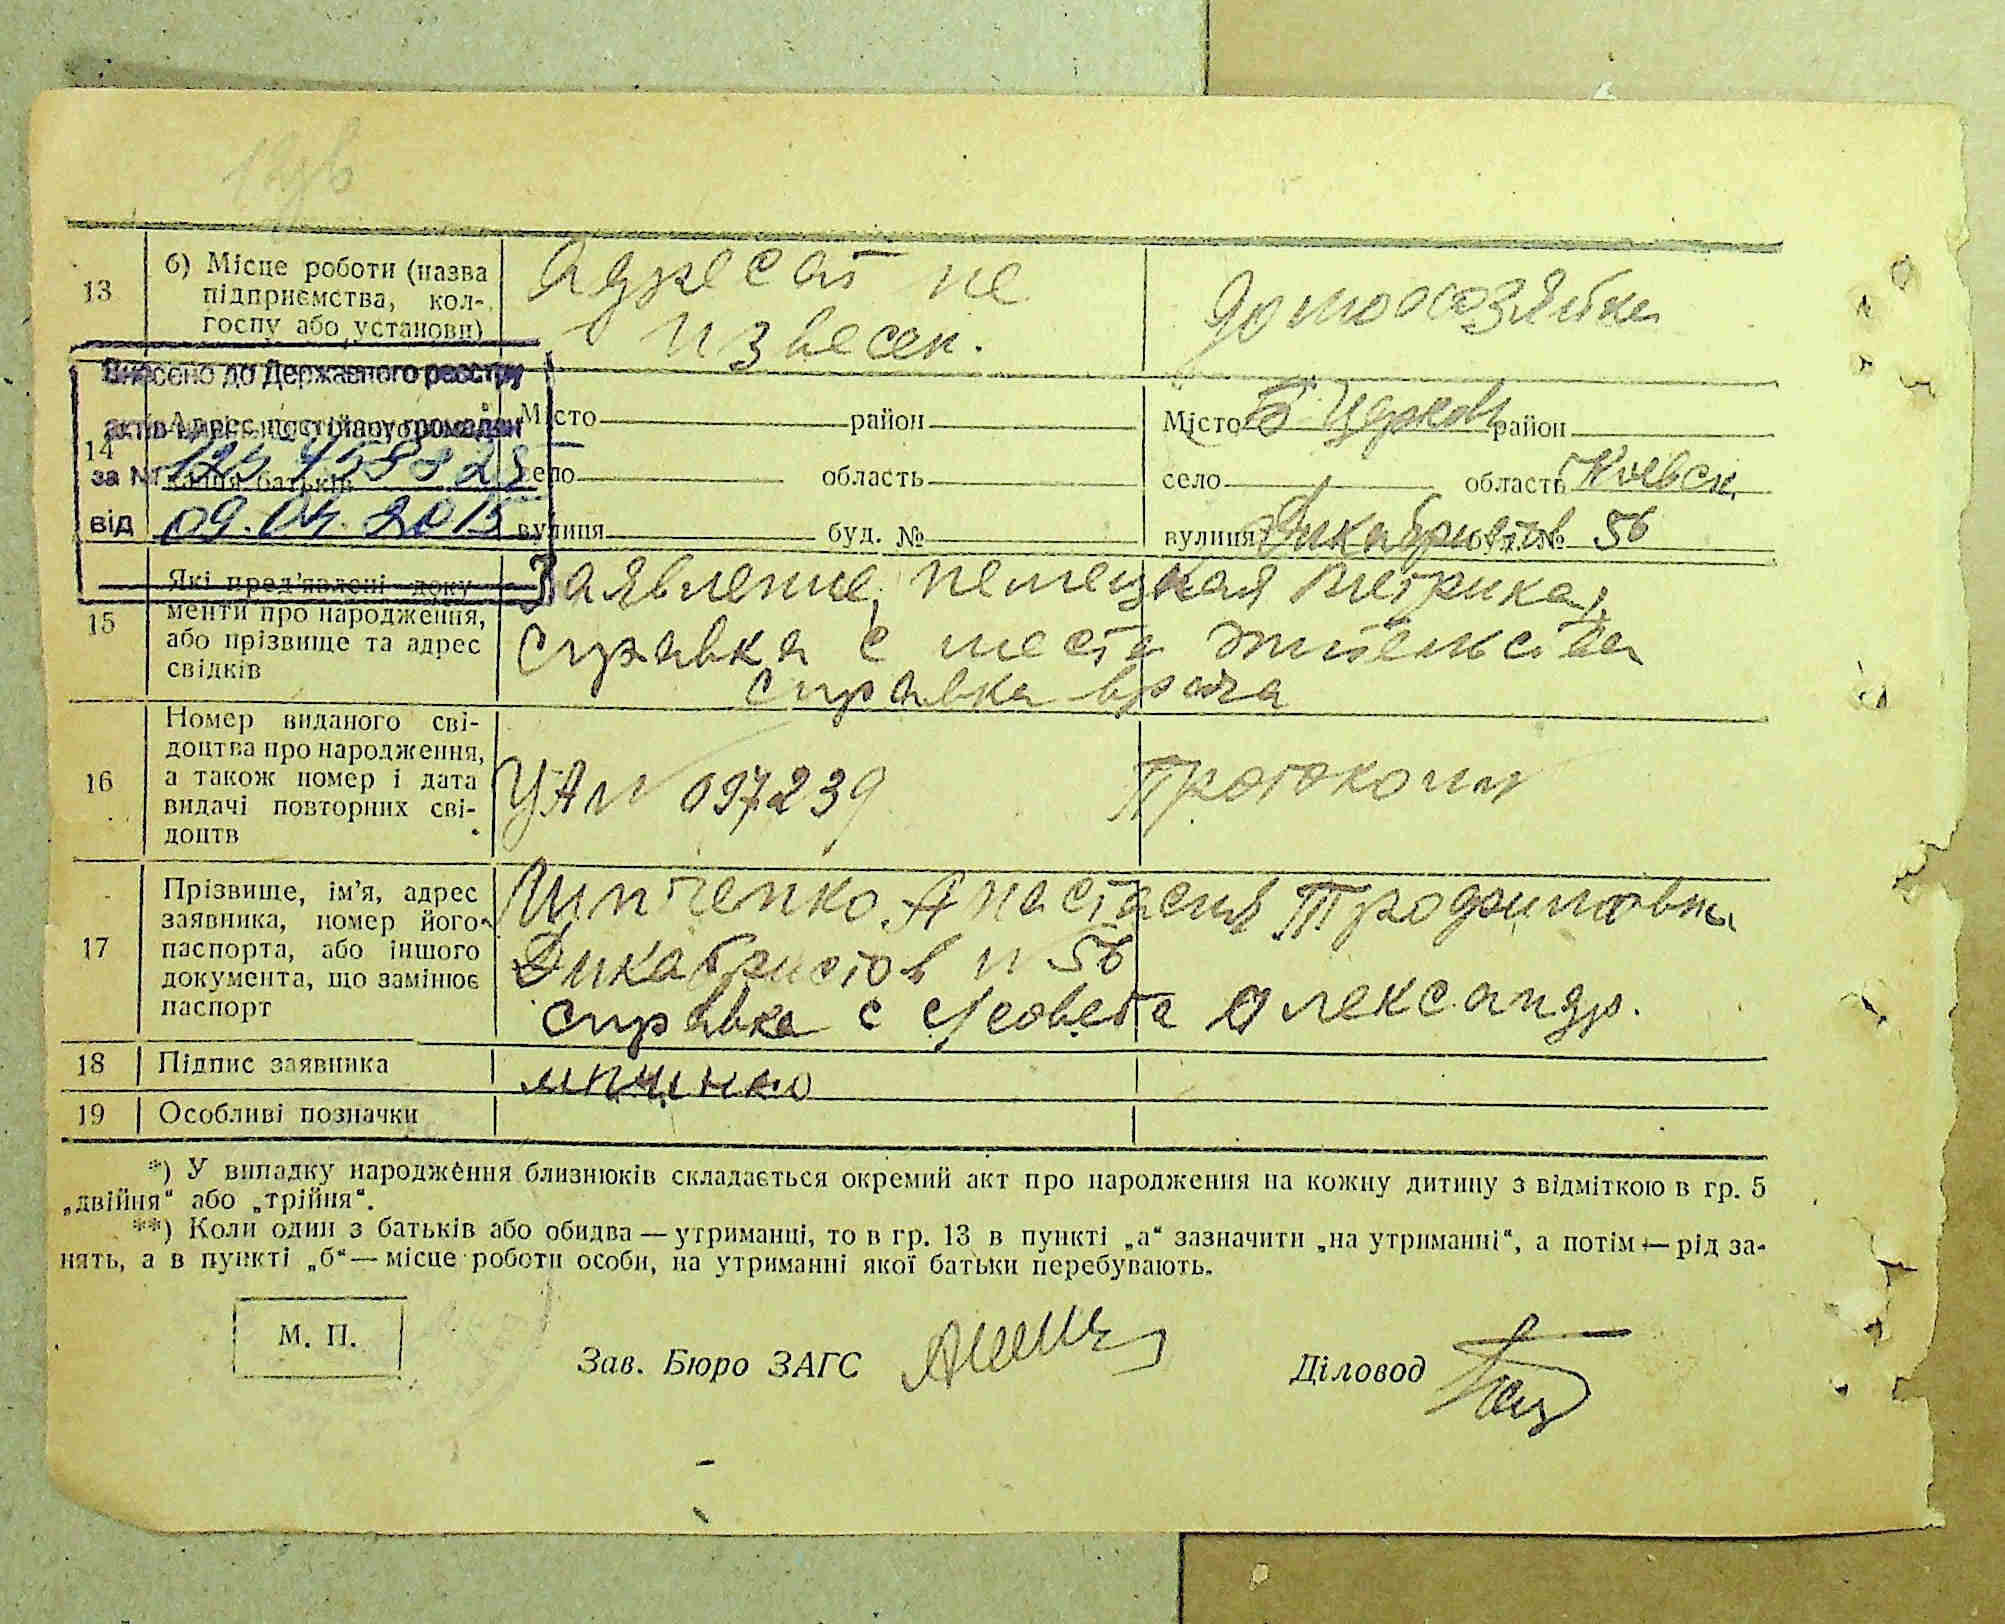 13
б) Місце роботи (назва
підприємства, кол-
госпу або установи)
адресат не
извесен.
домохозяйка
Внесено до Державного реєстру
за №
від 09.04.2015
14
Адрес постійного
кання батьків
Місто район
село область
вулиця буд. №
Місто Б Церков район
село область Киевск.
вулиця Дикабристов № 56
15
Які пред'явлені доку-
менти про народження,
або прізвище та адрес
свідків
Заявление, немецкая метрика,
справка с места жительства
справка врача
16
Номер виданого сві-
доцтва про народження,
а також номер і дата
видачі повторних сві-
доцтв
УА № 097239
17
Прізвище, ім'я, адрес
заявника, номер його
паспорта, або іншого
документа, що замінює
паспорт
Анастасия Трофимовна
Дикабристов № 56
справка с с/совета Александр.
18
Підпис заявника
19
Особливі позначки
*) У випадку народження близнюків складається окремий акт про народження на кожну дитину з відміткою в гр. 5
„двійня“ або „трійня“.
**) Коли один з батьків або обидва — утриманці, то в гр. 13 в пункті „а“ зазначити „на утриманні“, а потім — рід за-
нять, а в пункті „б“ — місце роботи особи, на утриманні якої батьки перебувають.
М. П.
Зав. Бюро ЗАГС
Діловод